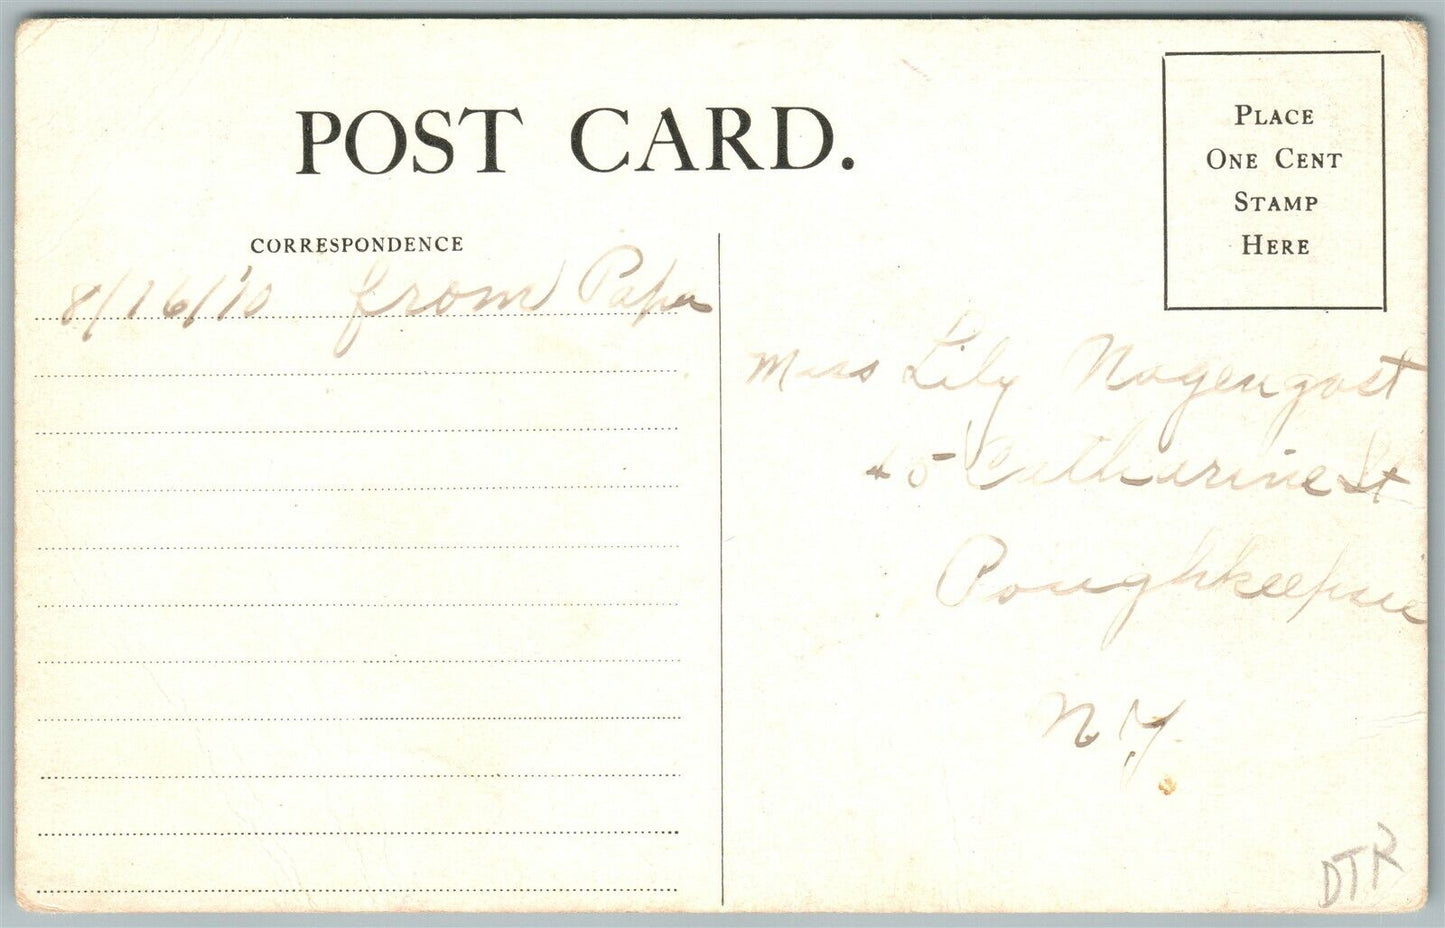 POST CARD.
PLACE
ONE CENT
STAMP
HERE
CORRESPONDENCE
8/16/10 from Papa
Miss Lily Nagengast
45 Catharine St
Poughkeepsie
N Y.
DTR